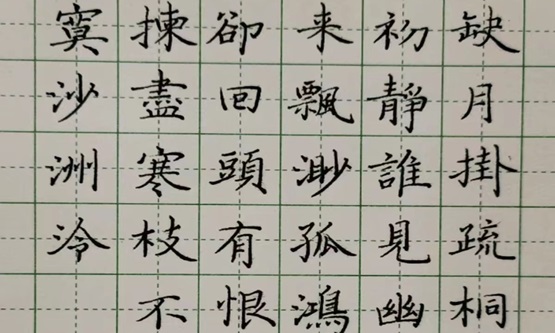 缺月掛疏桐
初靜誰見幽
来飄渺孤鴻
卻回頭有恨
揀盡寒枝不
寞沙洲泠